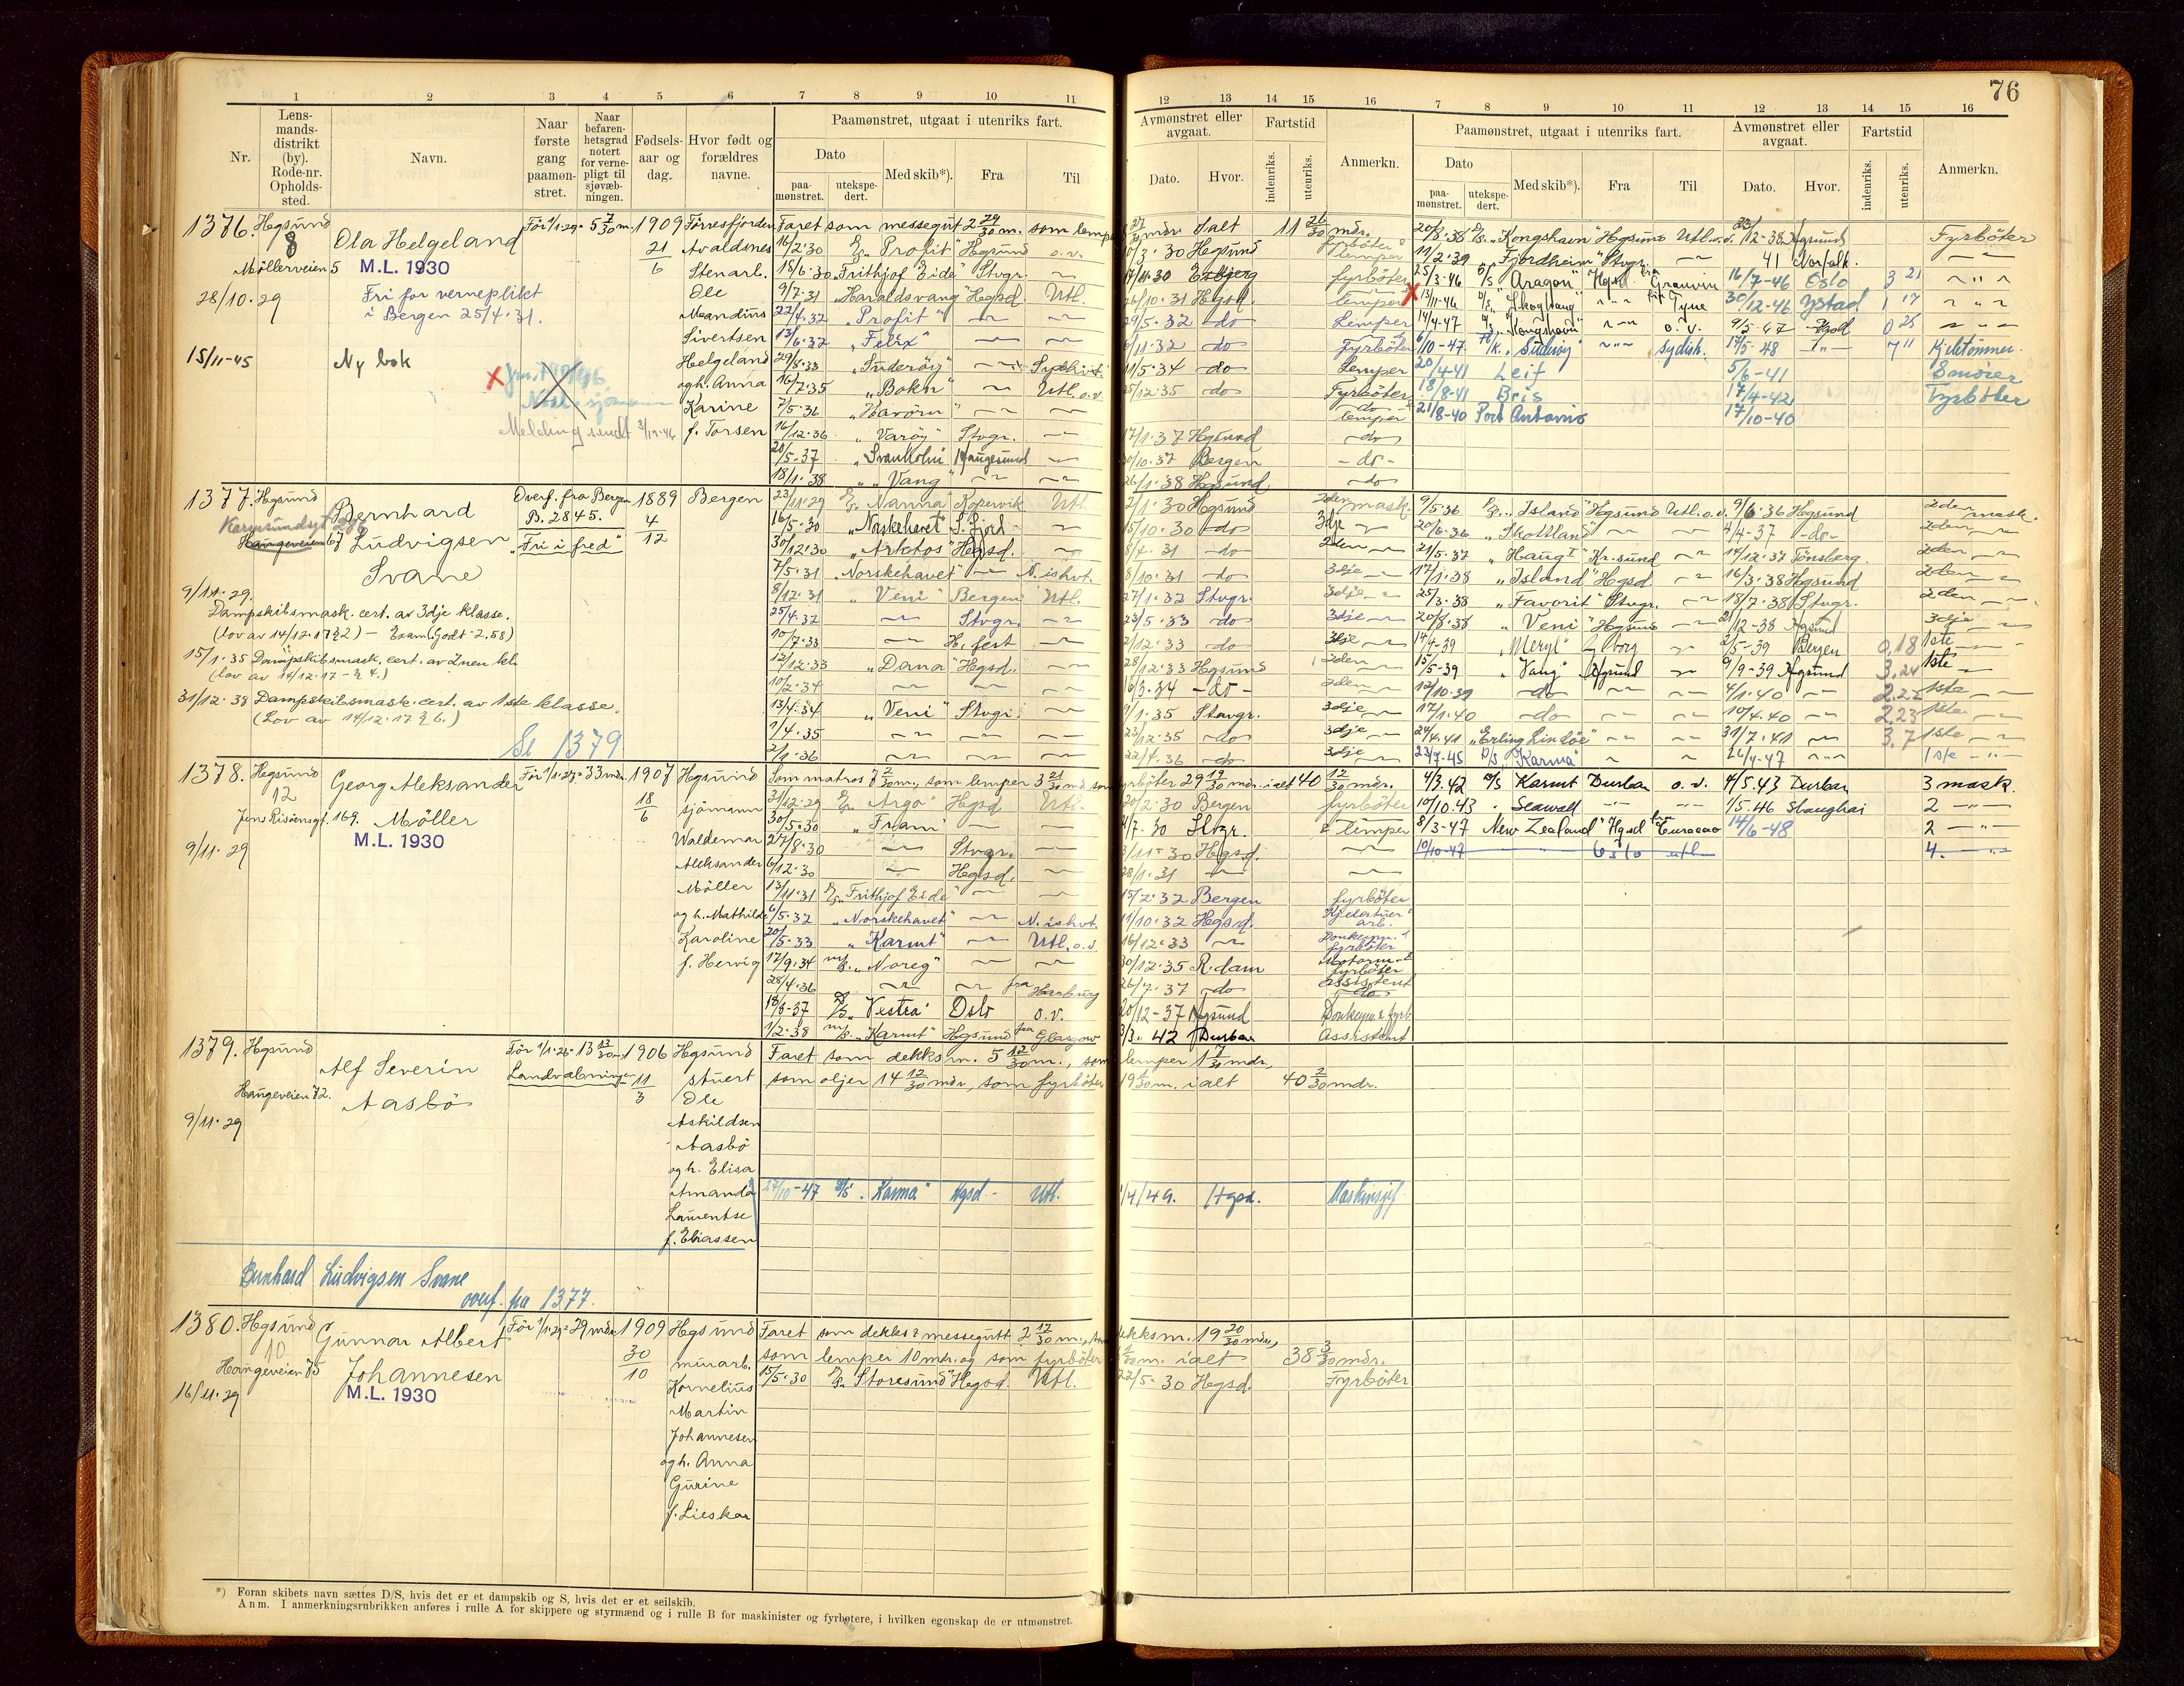 76
1 2 3 4 5 6 7 8 9 10 11 12 13 14 15 16 7 8 9 10 11 12 13 14 15 16
Nr.
Lens-
mands-
distrikt
(by).
Rode-nr.
Opholds-
sted.
Navn.
Naar
første
gang
paamøn-
stret.
Naar
befaren-
hetsgrad
notert
for verne-
pligt til
sjøvæb-
ningen.
Fødsels-
aar og
dag.
Hvor født og
forældres
navne.
Paamønstret, utgaat i utenriks fart.
Dato
paa-
mønstret.
utekspe-
dert.
Med skib*).
Fra
Til
Avmønstret eller
avgaat.
Dato.
Hvor.
Fartstid
indenriks.
utenriks.
Anmerkn.
Paamønstret, utgaat i utenriks fart.
Dato
paa-
mønstret.
utekspe-
dert.
Med skib*).
Fra
Til
Avmønstret eller
avgaat.
Dato.
Hvor.
Fartstid
indenriks.
utenriks.
Anmerkn.
1376. Hgsund
8
Möllerveien 5
28/10·29
Ola Helgeland
M.L. 1930
Fri for verneplikt
i Bergen 25/4·31.
15/11-45 Ny bok
Melding sendt
Før 1/1·29= 5 7/30 m. 1909
21
6
Førresfjorden
Avaldsnes
Stenarb.
Ole
Mandius
Sivertsen
Helgeland
og h. Anna
Karine
f. Torsen
Faret som messegut 2 29/30 m. som lemper
mdr Ialt 11 26/30 mdr.
16/2·30 "Profit" Hgsund o.v. 30 Hgsund
18/6·30 "Frithjof Eide" Stvgr. 17/11·30 Esbjerg fyrböter
9/7·31 "Haraldsvang" Hgsd. Utl. 26/10·31 Hgsd. lemper
22/4·32 "Profit" 29/5·32 do Lemper
13/6·32 "Felix" 11·32 do Fyrböter
29/8·33 "Suderöy" 11/5·34 do Lemper
16/7·35 "Bokn" Utl. o.v. 25/12·35 do Fyrböter
7/5·36 "Havörn" do lemper
16/12·36 "Varöy" Stvgr. 17/1·37 Hgsund do
20/5-37 "Svanholm" Haugesund 10·37 Bergen - do -
18/1·38 "Vang" 26/1·38 Hgsund do
20/8·38 "Kongshavn" Hgsund Utl. o.v. 12-38 Hgsund Fyrböter
11/2·39 "Fjordheim" Stvgr. 41 Norfolk.
25/3-46 D/S "Aragon" Hgsd fra Granvin 16/7-46 Oslo 3 21
13/11-46 D/S "Skogstang" fra Tyne 30/12-46 Ystad 1 17
14/4-47 D/S "Kongshavn" o.v. 9/5-47 Hgsd 0 25
6/10-47 "Suderöy" Sydish. 17/5-48 7 11 Kjeletömmer.
20/4-41 Leif 5/6-41 Smörer
18/8-41 Bris 17/4-42 Fyrböter
21/8-40 Port Antonio 17/10-40
1377. Hgsund
Karmsundsgt 276
Haugeveien 67
Bernhard
Ludvigsen
Svane
Overf. fra Bergen
B. 2845.
"Fri i fred"
1889
4
12
Bergen
9/11·29.
Dampskibsmask. cert. av 3dje klasse.
(lov av 14/12·17 § 2) - Exam. (Godt - 2,58)
15/1·35 Dampskibsmask. cert. av 2nen kl.
(lov av 14/12·17 - § 4.)
31/12·38 Dampskibsmask. cert. av 1ste klasse.
(Lov av 14/12·17 § 6.)
Se 1379
23/11·29 "Nanna" Kopervik Utl. 2/1·30 Hgsund 2den mask.
16/5·30 "Norskehavet" S. Fjord 15/10·30 do 3dje
30/12·30 "Arktos" Hgsd. 8/4·31 do 2den
7/5·31 "Norskehavet" N. ishvt. 8/10·31 do 3dje
8/12·31 "Veni" Bergen Utl. 27/1·32 Stvgr. 3dje
25/4·32 Stvgr. 23/5·33 do 3dje
10/7·33 H. fest 2/12·33 do 3dje
12/12·33 "Dana" Hgsd. 28/12·33 Hgsund 2den
10/2·34 6/3·34 - do - 2den
13/4·34 "Veni" Stvgr. 9/1·35 Stavgr. 3dje
1/4·35 23/12·35 do 3dje
2/1·36 22/4·36 do 3dje
9/5·36 "Island" Hgsund Utl. o.v. 9/6·36 Hgsund 2den mask.
20/6·36 "Skottland" 4/4-37 - do - 2den
21/5·37 "Haug I" Kr. sund 14/12·37 Tönsberg. 2den
17/1·38 "Island" Hgsd 16/3·38 Hgsund 2den
25/3·38 "Favorit" Stvgr. 18/7·38 Stvgr. 2den
20/8·38 "Veni" Hgsund 12-38 Hgsund 3dje
14/4-39 "Meryl" Gborg 2/5-39 Bergen 0,18 1ste
15/5-39 "Vang" Hgsund 9/9-39 Hgsund 3,24 1ste
12/10·39 - do - 4/1·40 2,22 1ste
17/1·40 - do - 10/4·40 2,23 1ste
24/4·41 "Erling Lindöe" 31/7·41 3,7 1ste
23/7-45 D/S "Karma" 26/4-47 1ste
1378. Hgsund
12
Jens Risøensgt. 169.
9/11·29
Georg Aleksander
Möller
M.L. 1930
Før 1/1·29= 33 mdr. 1907
18
6
Hgsund
sjömann
Waldemar
Aleksander
Möller
og h. Mathilde
Karoline
f. Hervig
Som matros 7 2/30 m., som lemper 3 21/30 md. som
fyrböter 29 19/30 mdr. ialt 40 12/30 mdr.
31/12·29 "Argo" Hgsd Utl. 20/2·30 Bergen fyrböter
30/5·30 "Fram" 7·30 Stvgr. lemper
27/8·30 Stvgr. 11·30 Hgsd.
6/12·30 Hgsd. 28/1·31
13/11·31 "Frithjof Eide" 15/2·32 Bergen fyrböter
6/5·32 "Norskehavet" N. ishvt. 11/10·32 Hgsd.
20/5·33 "Karmt" Utl. o.v. 16/12·33 Donkeym. fyrböter
17/9·34 M/S. "Noreg" 30/12·35 R.dam Motorm. fyrböter
28/4·36 fra Harburg 26/7·37 do assistent
18/8-37 D/S "Vestra" Oslo o.v. 20/12-37 Hgsund Donkeym. & fyrb
1/2·38 M/S. "Karmt" Hgsund fra Glasgow 3/3. 42 Durban Assistent
4/3.42 M/S Karmt Durban o.v. 4/5.43 Durban 3 mask.
10/10.43 Seawall 1/5.46 Shanghai 2
8/3-47 New Zealand Hgsd fra Curacao 14/6-48 2
10/10-47 Oslo utl 4.
1379. Hgsund
Haugeveien 72.
9/11·29
Alf Severin
Aasbö
Før 1/1·26= 13 13/30 m
Landvæbningen
1906
11
3
Hgsund
stuert
Ole
Askildsen
Aasbö
og h. Elisa
Amanda
Lamentse
f. Eliassen
Faret som dekksm. 5 12/30 m., som lemper 1 7/30 mdr,
som oljer 14 12/30 mdr, som fyrböter 19 m. ialt 40 2/30 mdr.
27/10-47 D/S. "Karma" Hgsd - Utl. 4/49. Hgsd. Maskinsjef.
Bernhard Ludvigsen Svane
overf. fra 1377.
1380. Hgsund
10
Haugeveien 75
16/11·29
Gunnar Albert
Johannesen
M.L. 1930
Før 1/1·29= 29 mdr. 1909
30
10
Hgsund
murarb.
Kornelius
Martin
Johannesen
og h. Anna
Gurine
f. Lieskar
Faret som dekks & messegutt 2 12/30 m., som dekksm. 19 20/30 mdr,
som lemper 10 mdr. og som fyrböter m. ialt 38 3/30 mdr.
15/5·30 "Storesund" Hgsd. Utl. 22/5·30 Hgsd. Fyrböter
*) Foran skibets navn sættes D/S, hvis det er et dampskib og S, hvis det er et seilskib.
Anm. I anmerkningsrubrikken anføres i rulle A for skippere og styrmænd og i rulle B for maskinister og fyrbøtere, i hvilken egenskap de er utmønstret.